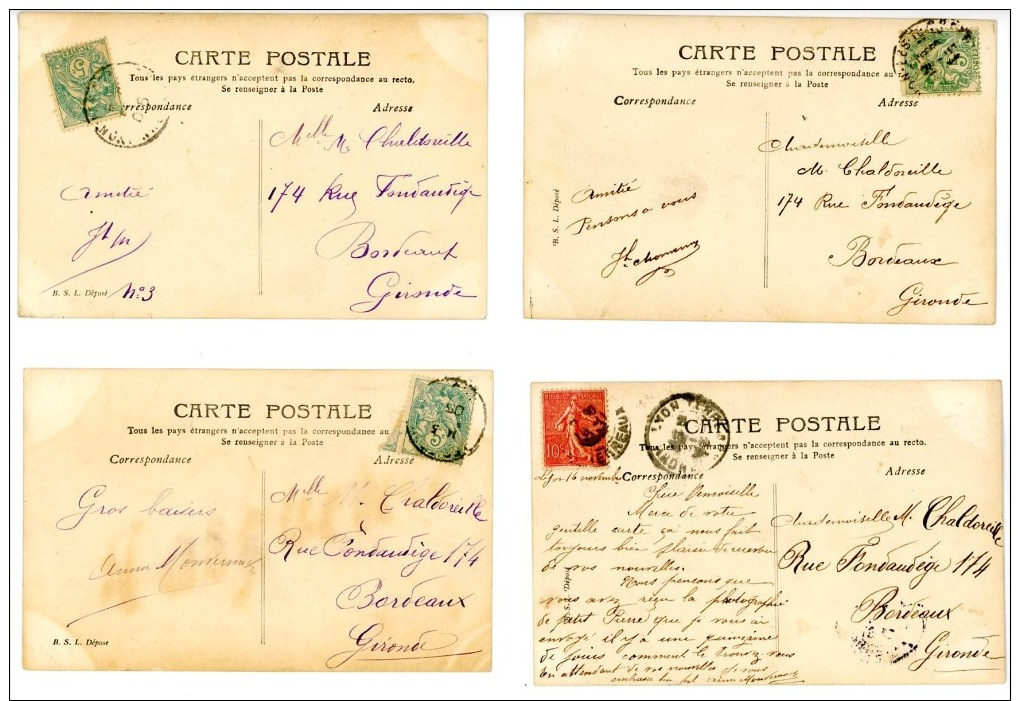 CARTE POSTALE
Tous les pays étrangers n'acceptent pas la correspondance au recto.
Se renseigner à la Poste
Correspondance
Adresse
Amitié
B. S. L. Déposé
No 3
Melle M. Chaldoreille
174 Rue Fondaudège
Bordeaux
Gironde
CARTE POSTALE
Tous les pays étrangers n'acceptent pas la correspondance au
Se renseigner à la Poste
Correspondance
Adresse
B. S. L. Déposé
Amitié
Pensons a vous
Mademoiselle
M. Chaldoreille
174 Rue Fondaudège
Bordeaux
Gironde
CARTE POSTALE
Tous les pays étrangers n'acceptent pas la correspondance au
Se renseigner à la Poste
Correspondance
Adresse
Gros baisers
Anna
B. S. L. Déposé
Melle M. Chaldoreille
Rue Fondaudège 174
Bordeaux
Gironde
10
LYON
CARTE POSTALE
Tous les pays étrangers n'acceptent pas la correspondance au recto.
Se renseigner à la Poste
Correspondance
Adresse
Lyon 16 novembre
Chère
Merci de votre
gentille carte ça nous fait
toujours bien plaisir
de vos nouvelles.
Nous pensons que
vous avez reçu la photographie
de petit Pierre que je vous ai
envoyé il y a une quinzaine
de jours comment le trouvez vous
En attendant de vos nouvelles je vous
embrasse
B. S. L. Déposé
Mademoiselle M. Chaldoreille
Rue Fondaudège 174
Bordeaux
Gironde